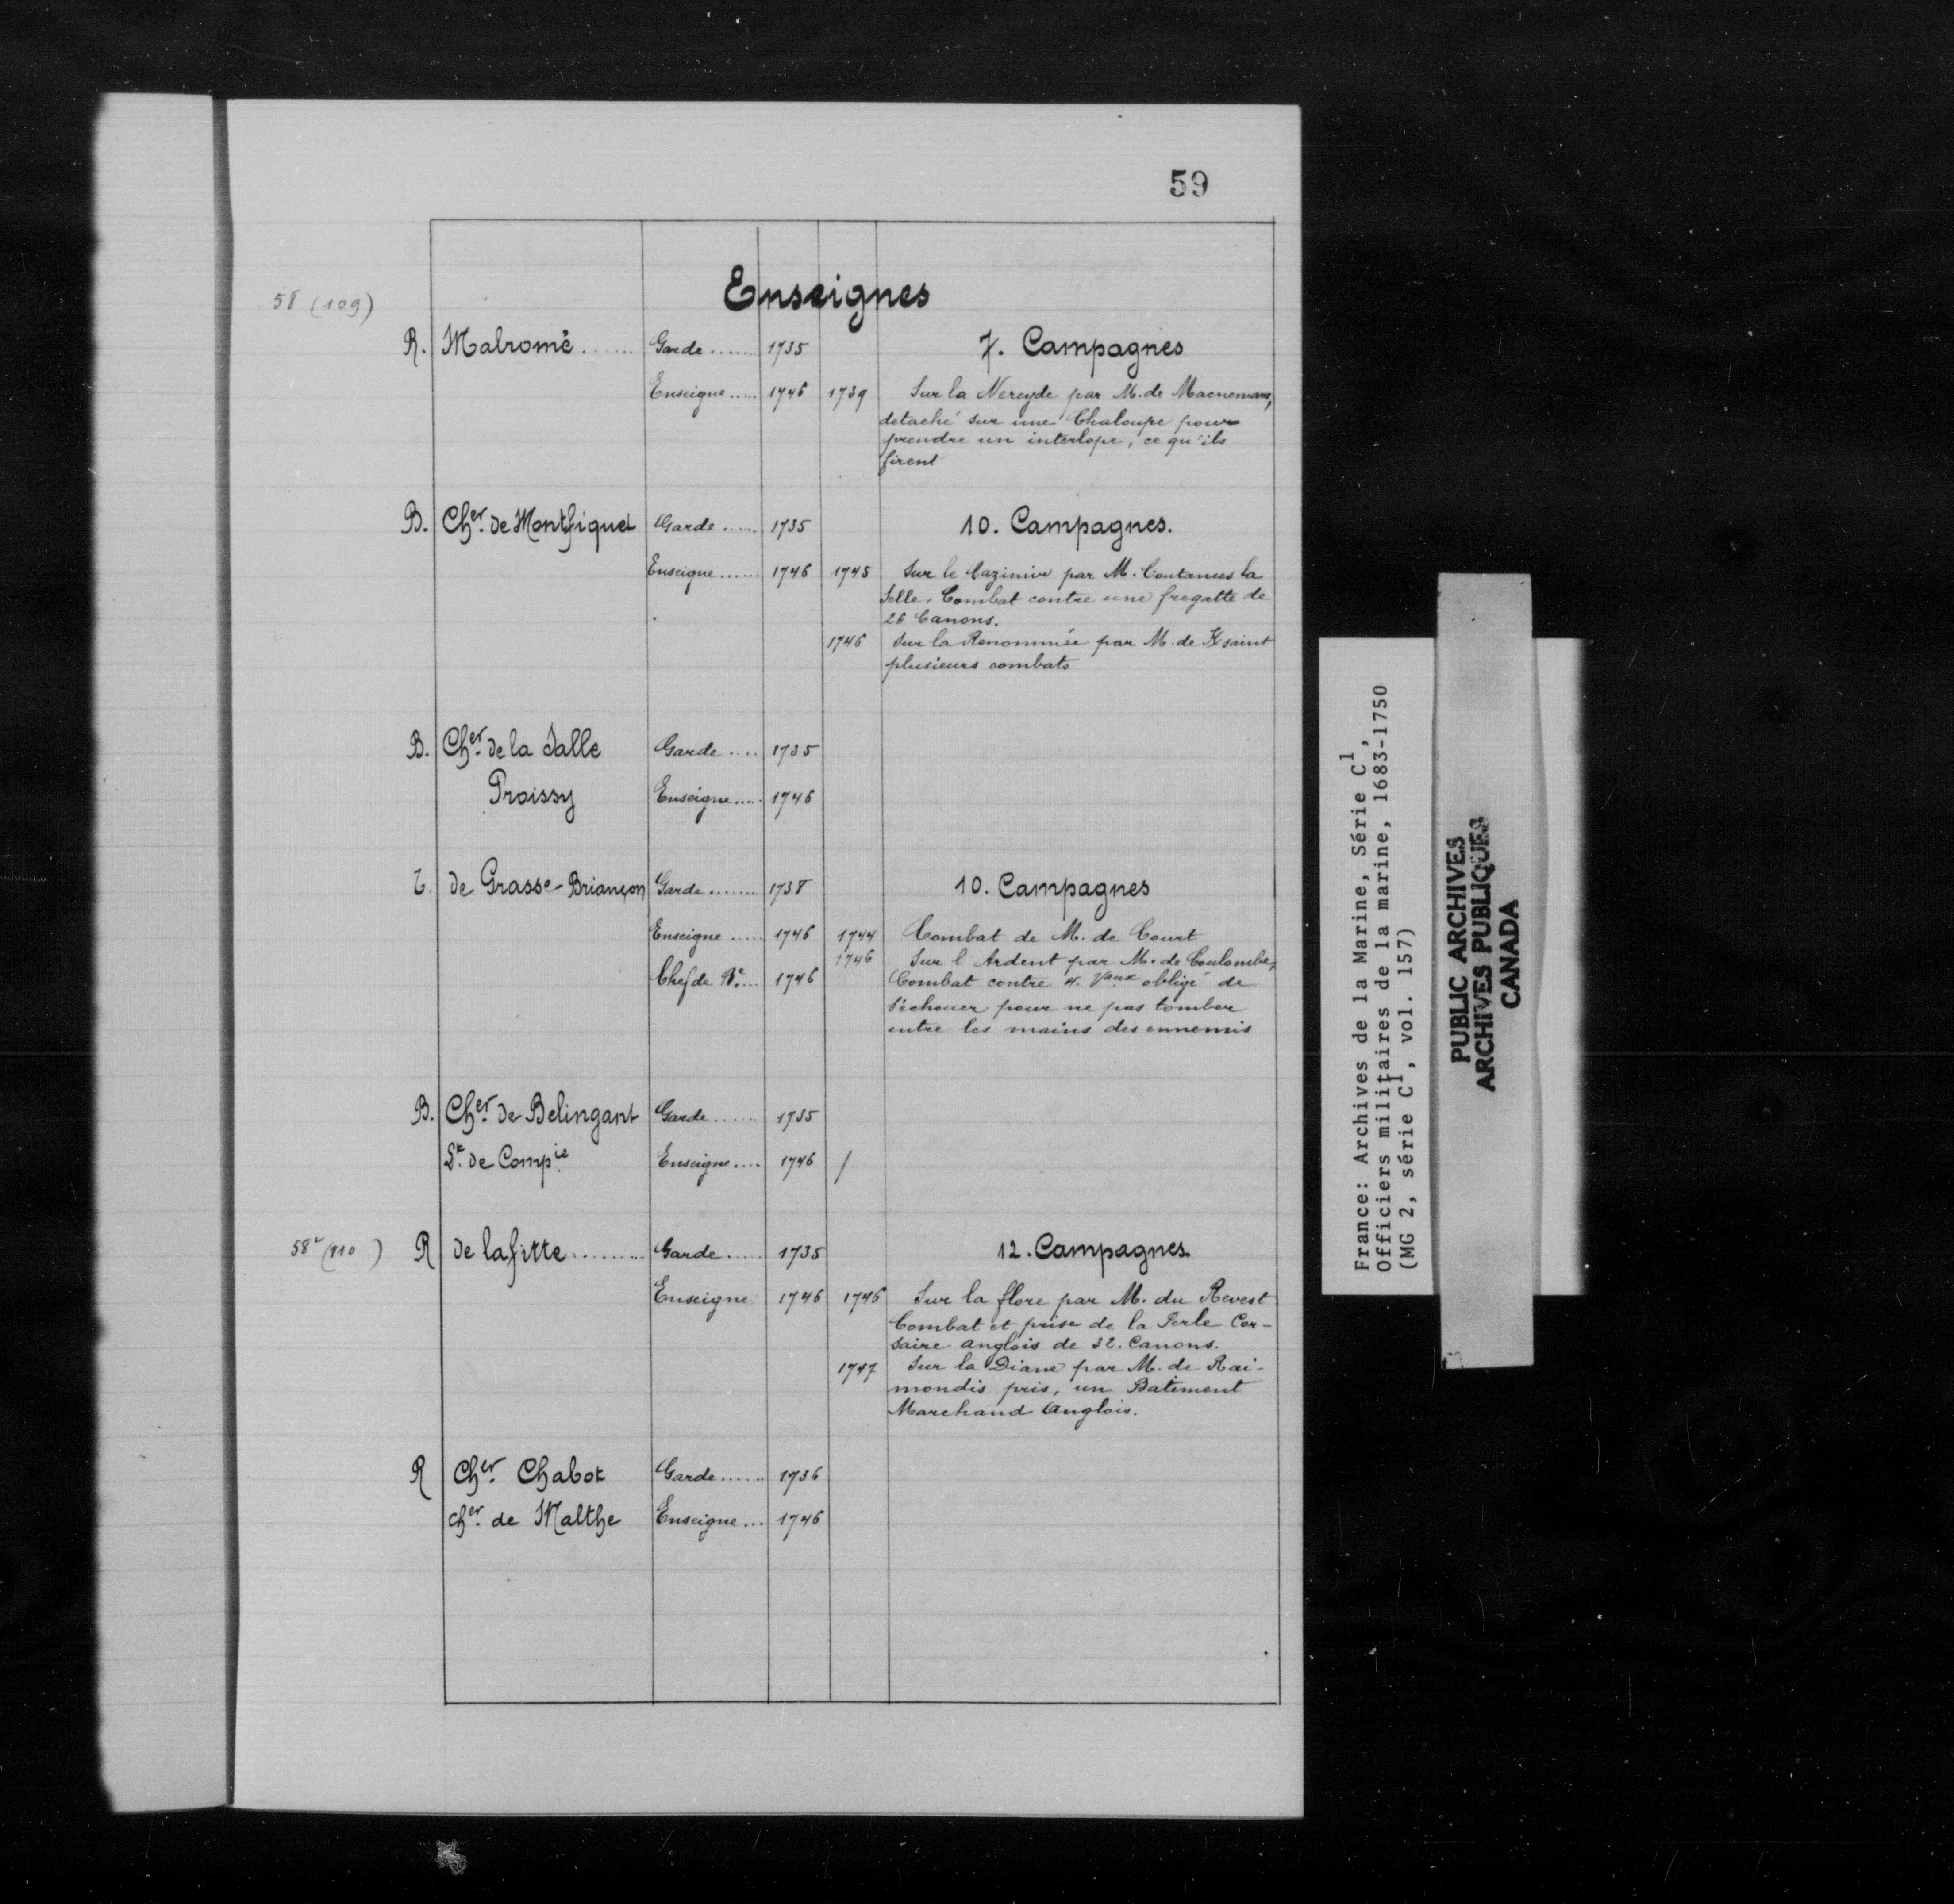 59
Enseignes
58 (109)
R. Malromé ....... Garde ....... 1735 7. Campagnes
Enseigne ..... 1746 1739 Sur la Nereyde par M. de Macnemara,
detaché sur une Chaloupe pour
prendre un interlope, ce qu'ils
firent
B. Cher. de Montfiquet Garde ...... 1735 10. Campagnes.
Enseigne ...... 1746 1745 Sur le Cazimir par M. Coutances la
Selle. Combat contre une fregatte de
26 Canons.
1746 Sur la Renommée par M. de Ksaint
plusieurs combats
B. Cher. de la Salle Garde .... 1735
Proissy Enseigne ..... 1746
T. de Grasse-Briançon Garde ........ 1738 10. Campagnes
Enseigne ..... 1746 1744 Combat de M. de Court
1746 Sur l'Ardent par M. de Coulombe,
Chef de Be. ... 1746 Combat contre 4. Vaux obligé de
s'échouer pour ne pas tomber
entre les mains des ennemis
B. Cher. de Belingant Garde ...... 1735
Lt. de Compie Enseigne .... 1746 /
58v (110) R de lafitte ......... Garde ...... 1735 12. Campagnes
Enseigne 1746 1746 Sur la flore par M. du Revest
Combat et prise de la Perle Cor-
saire anglois de 32. Canons.
1747 Sur la Diane par M. de Rai-
mondis pris, un Batiment
Marchand Anglois.
R Cher. Chabot Garde ...... 1736
cher. de Malthe Enseigne ... 1746
France: Archives de la Marine, Série C1,
Officiers militaires de la marine, 1683-1750
(MG 2, série C1, vol. 157)
PUBLIC ARCHIVES
ARCHIVES PUBLIQUES
CANADA